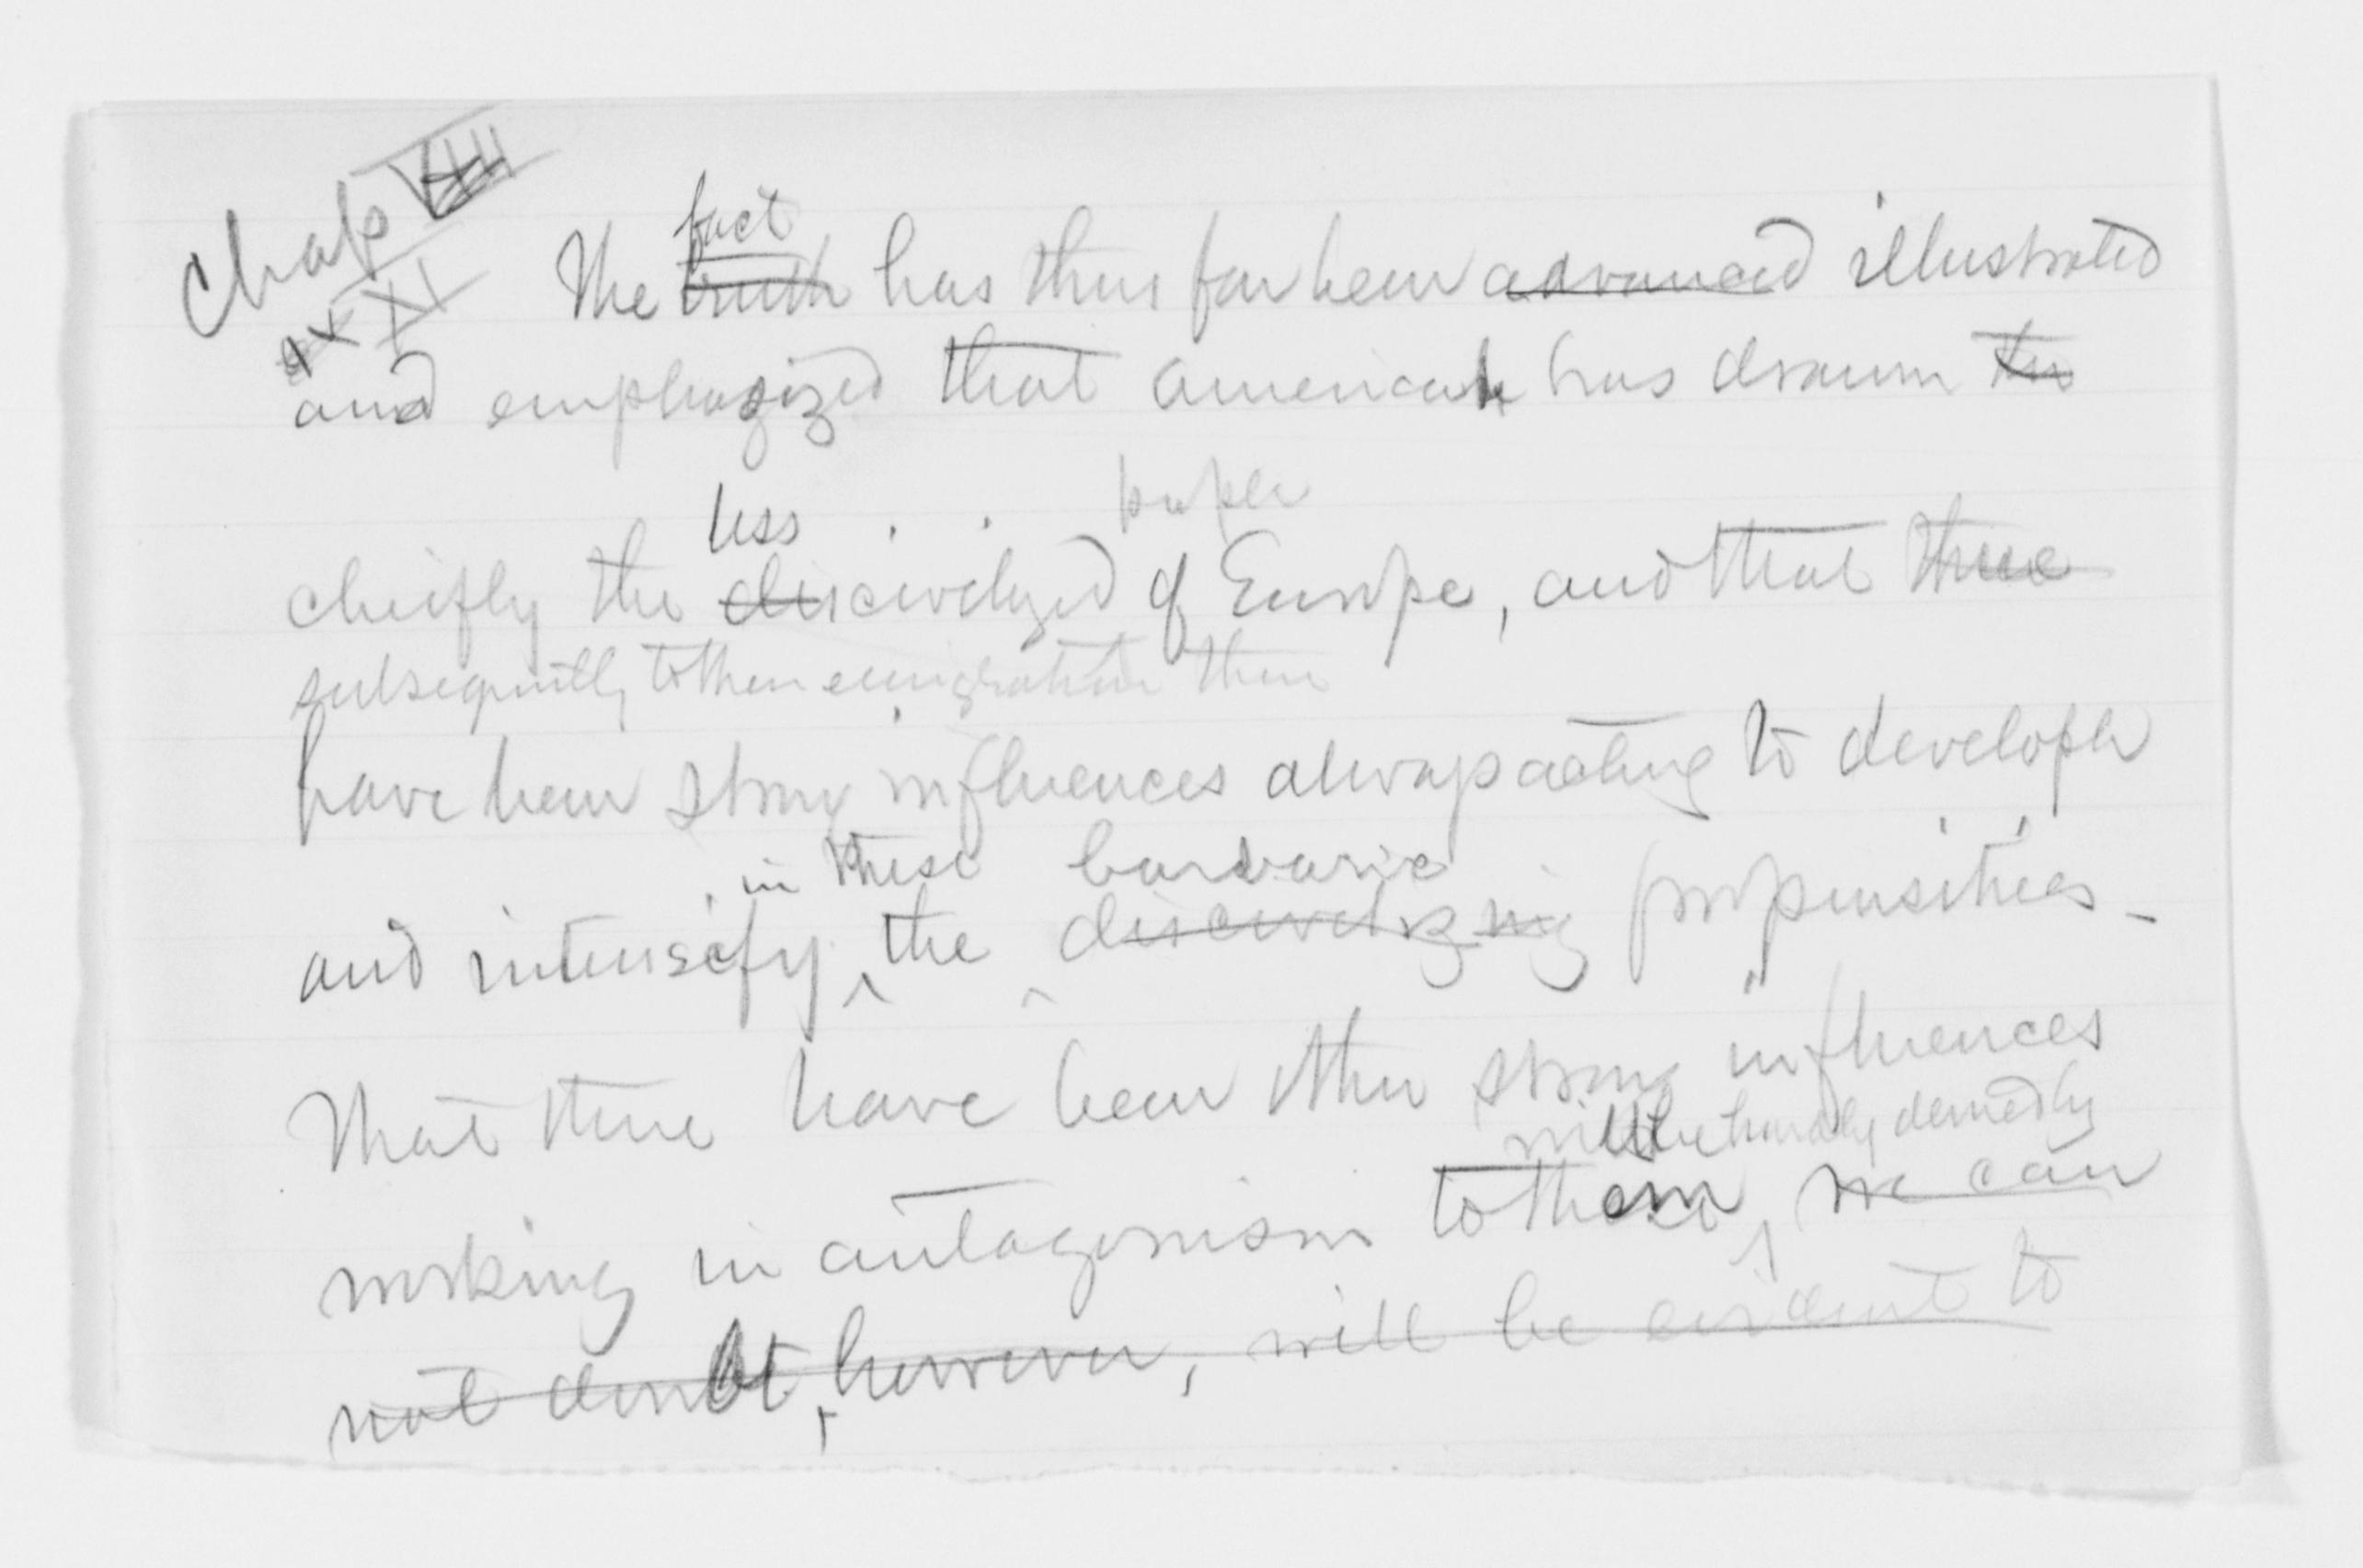 Chap VIII
XI
fact
The truth has thus far been advanced illustrated
and emphasized that America has drawn the
less
chiefly the discivilized of Europe, and that there
subsequently to their emigration there
have been strong influences always acting to develop
in these barbaric
and intensify the discivilizing propensities -
That there have been other strong influences
will be hardly denied by
working in antagonism to them, we can
not doubt, however, will be evident to